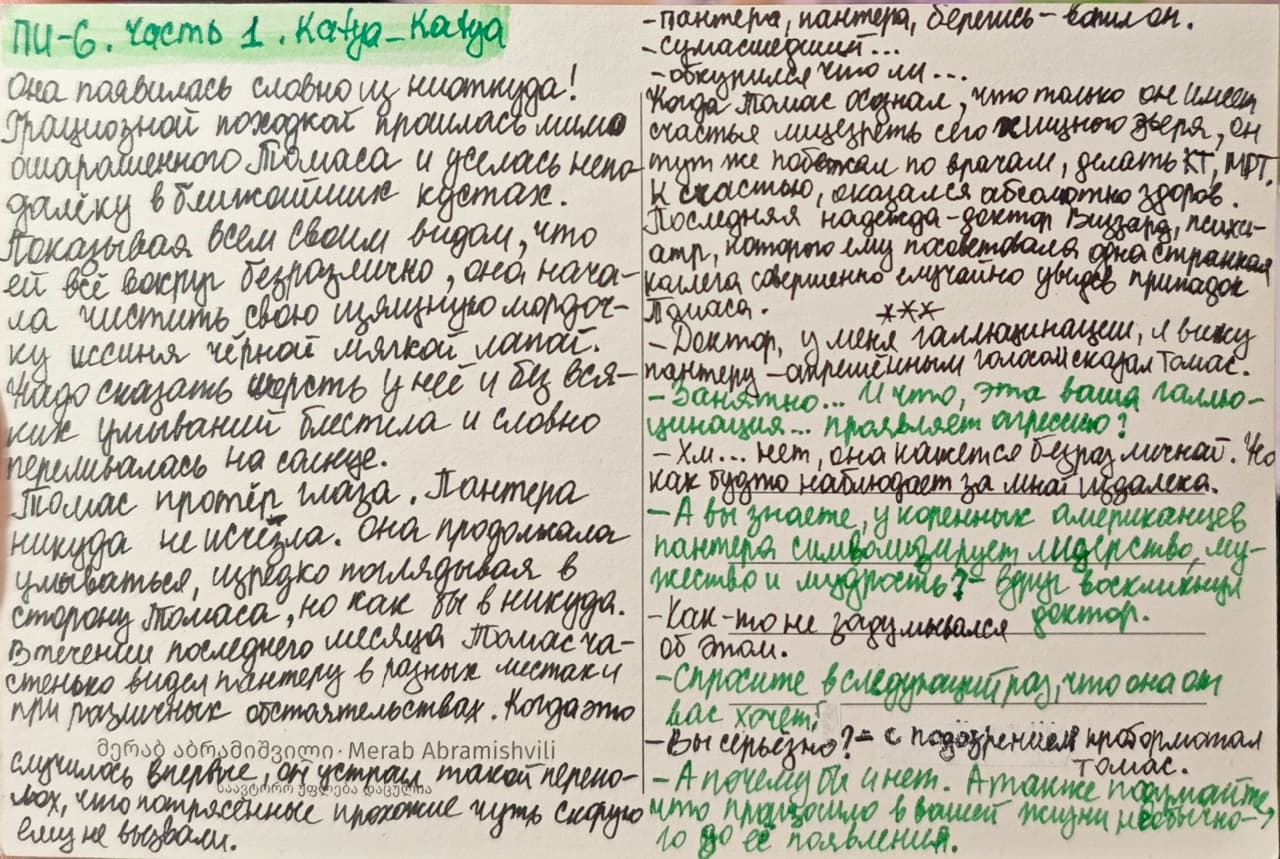 ПИ-6. Часть 1. Katya_Katya
Она появилась словно из ниоткуда!
Грациозной походкой прошлась мимо
ошарашенного Томаса и уселась непо-
далёку в ближайших кустах.
Показывая всем своим видом, что
ей всё вокруг безразлично, она нача-
ла чистить свою изящную мордоч-
ку иссиня чёрной мягкой лапой.
Надо сказать шерсть у неё и без вся-
ких умываний блестела и словно
переливалась на солнце.
Томас протёр глаза. Пантера
никуда не исчезла. Она продолжала
умываться, изредко поглядывая в
сторону Томаса, но как бы в никуда.
В течении последнего месяца Томас ча-
стенько видел пантеру в разных местах и
при различных обстоятельствах. Когда это
მერაბ აბრამიშვილი · Merab Abramishvili
случилось впервые, он устроил такой перепо-
საავტორო უფლება დაცულია
лох, что потрясённые прохожие чуть скорую
ему не вызвали.
- пантера, пантера, берегись - вопил он.
- сумасшедший...
- обкурился что ли...
Когда Томас осознал, что только он имеет
счастье лицезреть сего хищного зверя, он
тут же побежал по врачам, делать КТ, МРТ.
К счастью, оказался абсолютно здоров.
Последняя надежда - доктор Виззард, психи-
атр, которого ему посоветовала одна странная
коллега совершенно случайно увидев припадок
Томаса.
***
- Доктор, у меня галлюцинации, я вижу
пантеру - отрешённым голосом сказал Томас.
- Занятно... И что, эта ваша галлю-
цинация... проявляет агрессию?
- Хм... нет, она кажется безразличной. Но
как будто наблюдает за мной издалека.
- А вы знаете, у коренных американцев
пантера символизирует лидерство, му-
жество и мудрость? - вдруг воскликнул
доктор.
- Как-то не задумывался
об этом.
- Спросите в следующий раз, что она от
вас хочет!
- Вы серьёзно? - с подозрением пробормотал
Томас.
- А почему бы и нет. А также подумайте
что произошло в вашей жизни необычно- →
го до её появления.